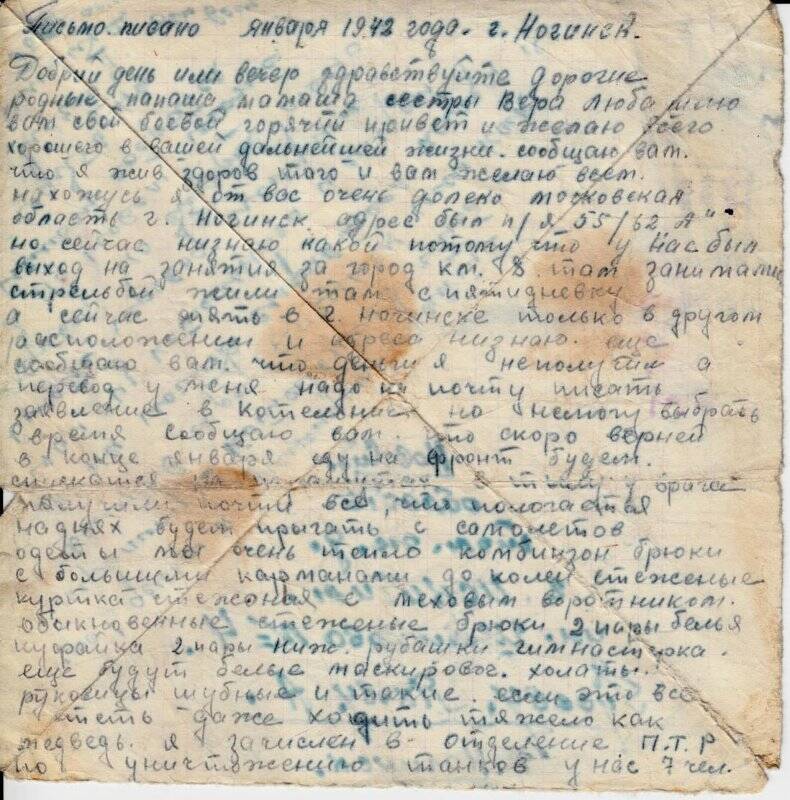 Письмо. писано января 1942 года. г. Ногинск.
Добрий день или вечер здравствуйте дорогие
родные папаша мамаша сестры Вера Люба шлю
вам свой боевой горячий привет и желаю всего
хорошего в вашей дальнейшей жизни. сообщаю вам.
что я жив здоров того и вам желаю всем.
нахожусь я от вас очень далеко московская
область г. Ногинск. адрес был п/я 55/62 А"
но сейчас низнаю какой потому что у нас был
выход на занятия за город км. 8. там занимались
стрельбой жили там с пятидневку
а сейчас опять в г. Ногинске только в другом
расположении и адреса низнаю. еще
сообщаю вам. что деньги я неполучил а
перевод у меня надо на почту писать
заявление в Котельнич но немогу выбрать
время сообщаю вам. что скоро верней
в конце января еду на фронт будем.
спускатся на в тыл у врага
получили почти все, что пологается
наднях будем прыгать с самолетов
одеты мы очень тепло комбинзон брюки
с большими карманами до колен стеженые
куртка стежоная с меховым воротником.
обыкновенные стеженые брюки 2 пары белья
куфайка 2 пары ниж. рубашки гимнастерка.
еще будут белые маскировоч. халаты.
рукавицы шубные и такие. если это все
одеть даже ходить тяжело как
медведь. я зачислен в отделение П.Т.Р
по уничтожению танков у нас 7 чел.